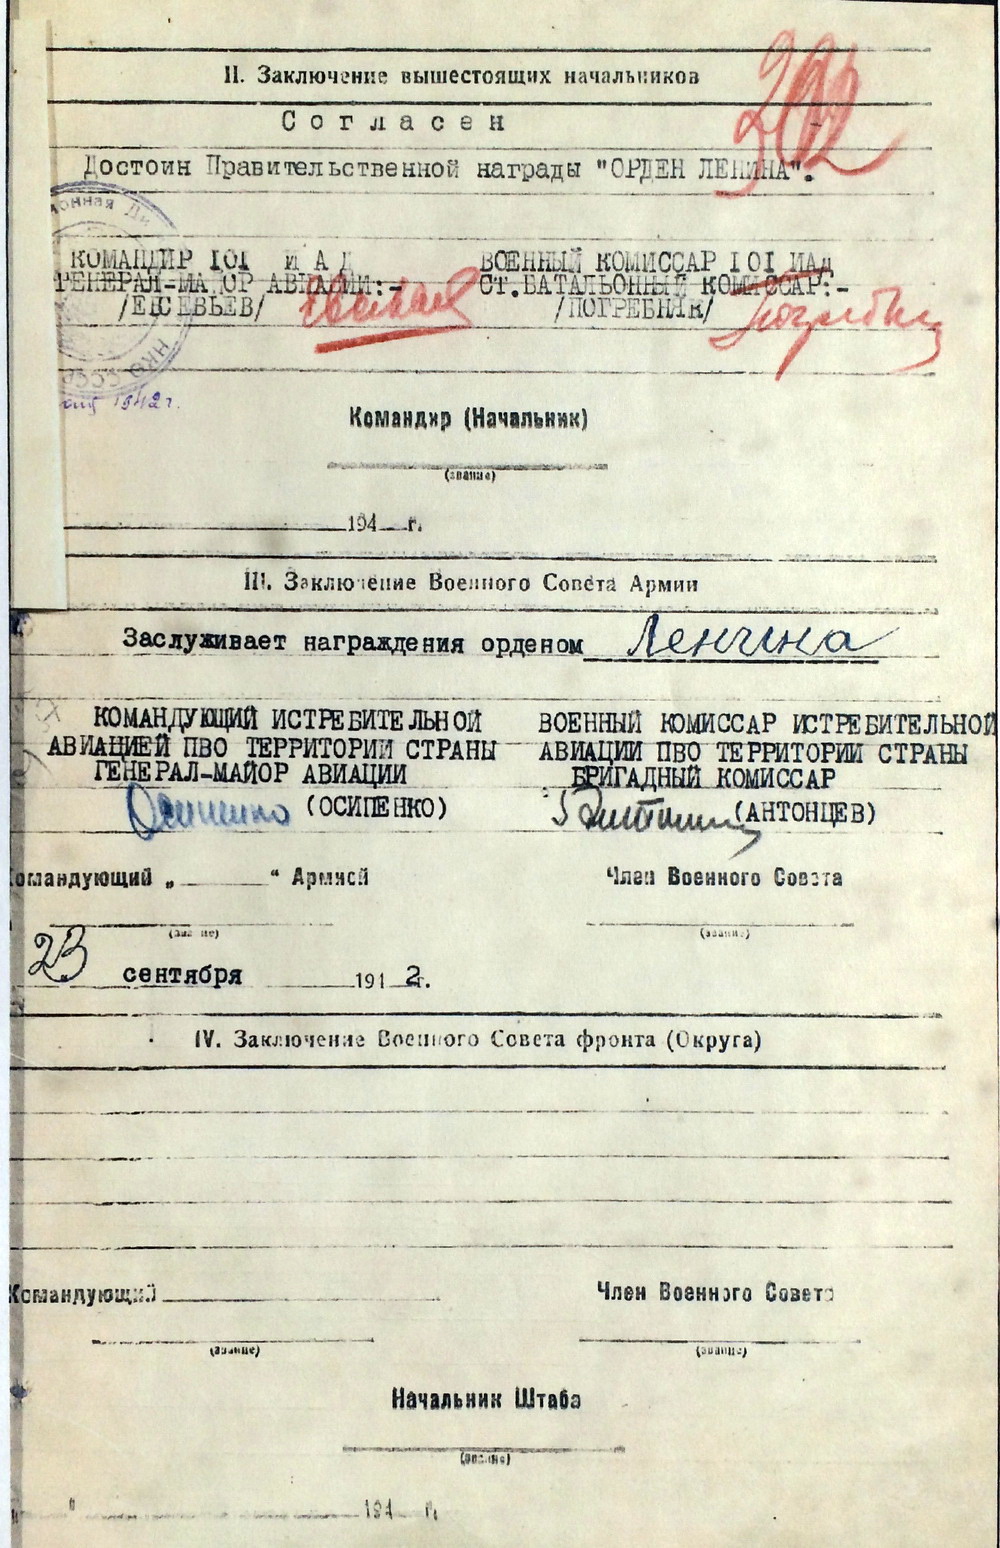 II. Заключение вышестоящих начальников
Согласен
Достоин Правительственной награды "ОРДЕН ЛЕНИНА".
КОМАНДИР 101 И А Д
ГЕНЕРАЛ-МАЙОР АВИАЦИИ:-
/ЕВСЕВЬЕВ/
ВОЕННЫЙ КОМИССАР 101 ИАД
СТ.БАТАЛЬОННЫЙ КОМИССАР:-
/ПОГРЕБНЯК/
НКО СССР
1942 г.
Командир (Начальник)
(звание)
194 г.
III. Заключение Военного Совета Армии
Заслуживает награждения орденом Ленина
КОМАНДУЮЩИЙ ИСТРЕБИТЕЛЬНОЙ
АВИАЦИЕЙ ПВО ТЕРРИТОРИИ СТРАНЫ
ГЕНЕРАЛ-МАЙОР АВИАЦИИ
Осипенко (ОСИПЕНКО)
ВОЕННЫЙ КОМИССАР ИСТРЕБИТЕЛЬНОЙ
АВИАЦИИ ПВО ТЕРРИТОРИИ СТРАНЫ
БРИГАДНЫЙ КОМИССАР
(АНТОНЦЕВ)
Командующий „ “ Армией
Член Военного Совета
(звание)
(звание)
23 сентября 1942г.
IV. Заключение Военного Совета фронта (Округа)
Командующий
Член Военного Совета
(звание)
(звание)
Начальник Штаба
(звание)
" 194 г.